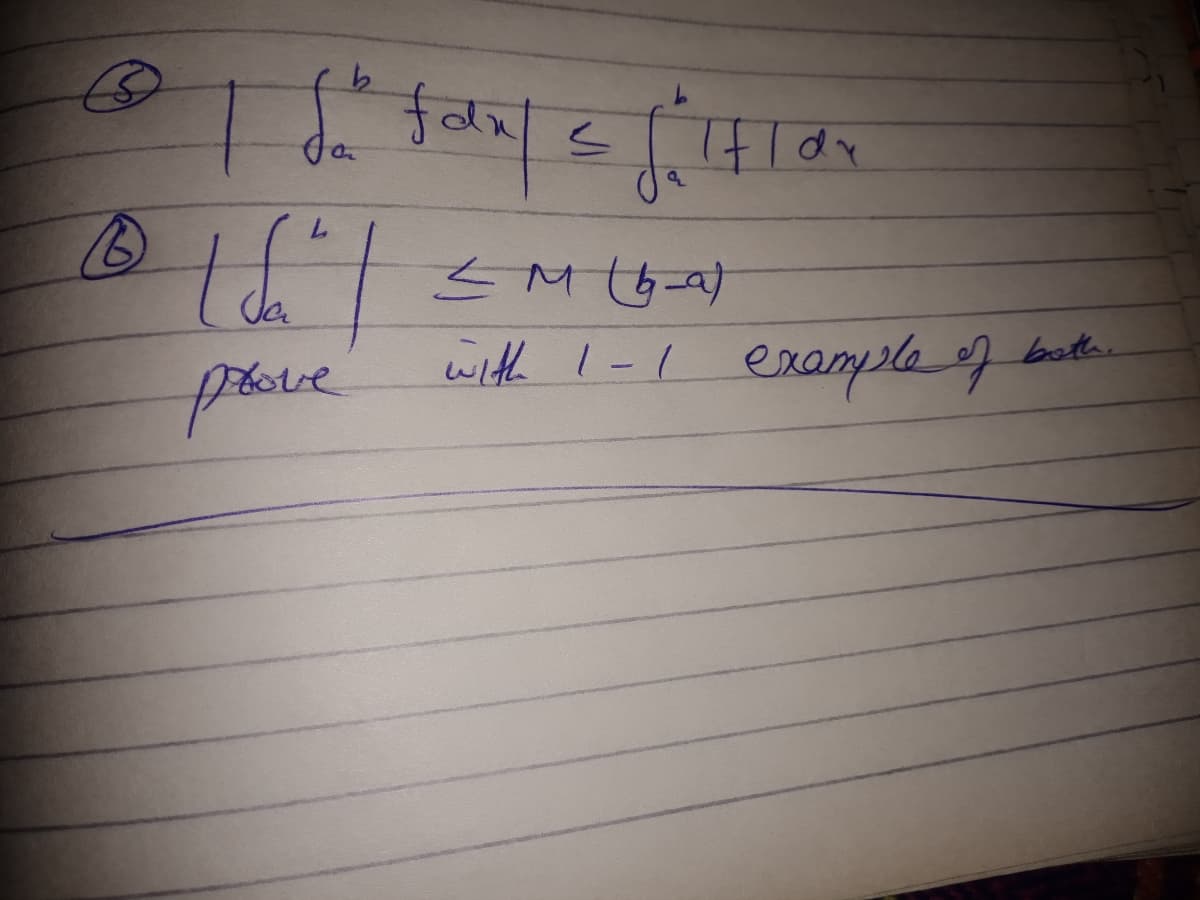 ⑤ | ∫ₐᵇ f dx | ≤ ∫ₐᵇ |f| dx
⑥ | ∫ₐᵇ | ≤ M (b-a)
prove with 1-1 example of both.